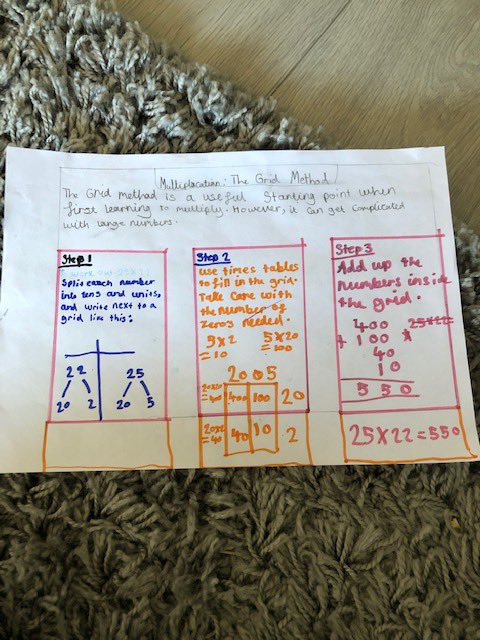 Multiplacation: The Grid Method
The Grid method is a useful starting point when
first learning to multiply. However, it can get complicated
with large numbers.
Step 1
Split each number
into tens and units,
and write next to a
grid like this:
22 25
20 2 20 5
Step 2
use times tables
to fill in the grid.
Take care with
the number of
zeros needed.
5x20
=10 =100
20 5
400 100 20
=40 40 10 2
Step 3
Add up the
numbers inside
the grid.
400 25x22
+ 100
40
10
550
25x22=550